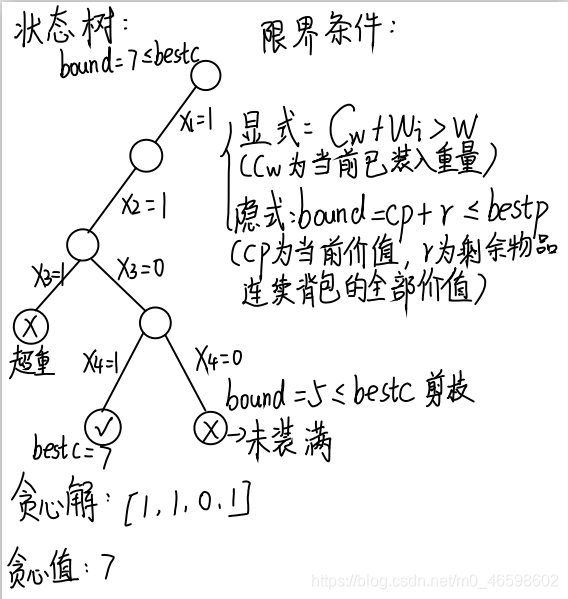 状态树：
限界条件：
bound=7≤bestc
x₁=1
显式= Cw+Wi>W
(Cw为当前已装入重量)
x₂=1
隐式:bound=cp+r≤bestp
(CP为当前价值，r为剩余物品
连续背包的全部价值)
x₃=1
x₃=0
X
超重
x₄=1
x₄=0
bound=5≤bestc 剪枝
✓
X
→未装满
bestc=7
贪心解：[1,1,0,1]
贪心值：7
https://blog.csdn.net/m0_46598602